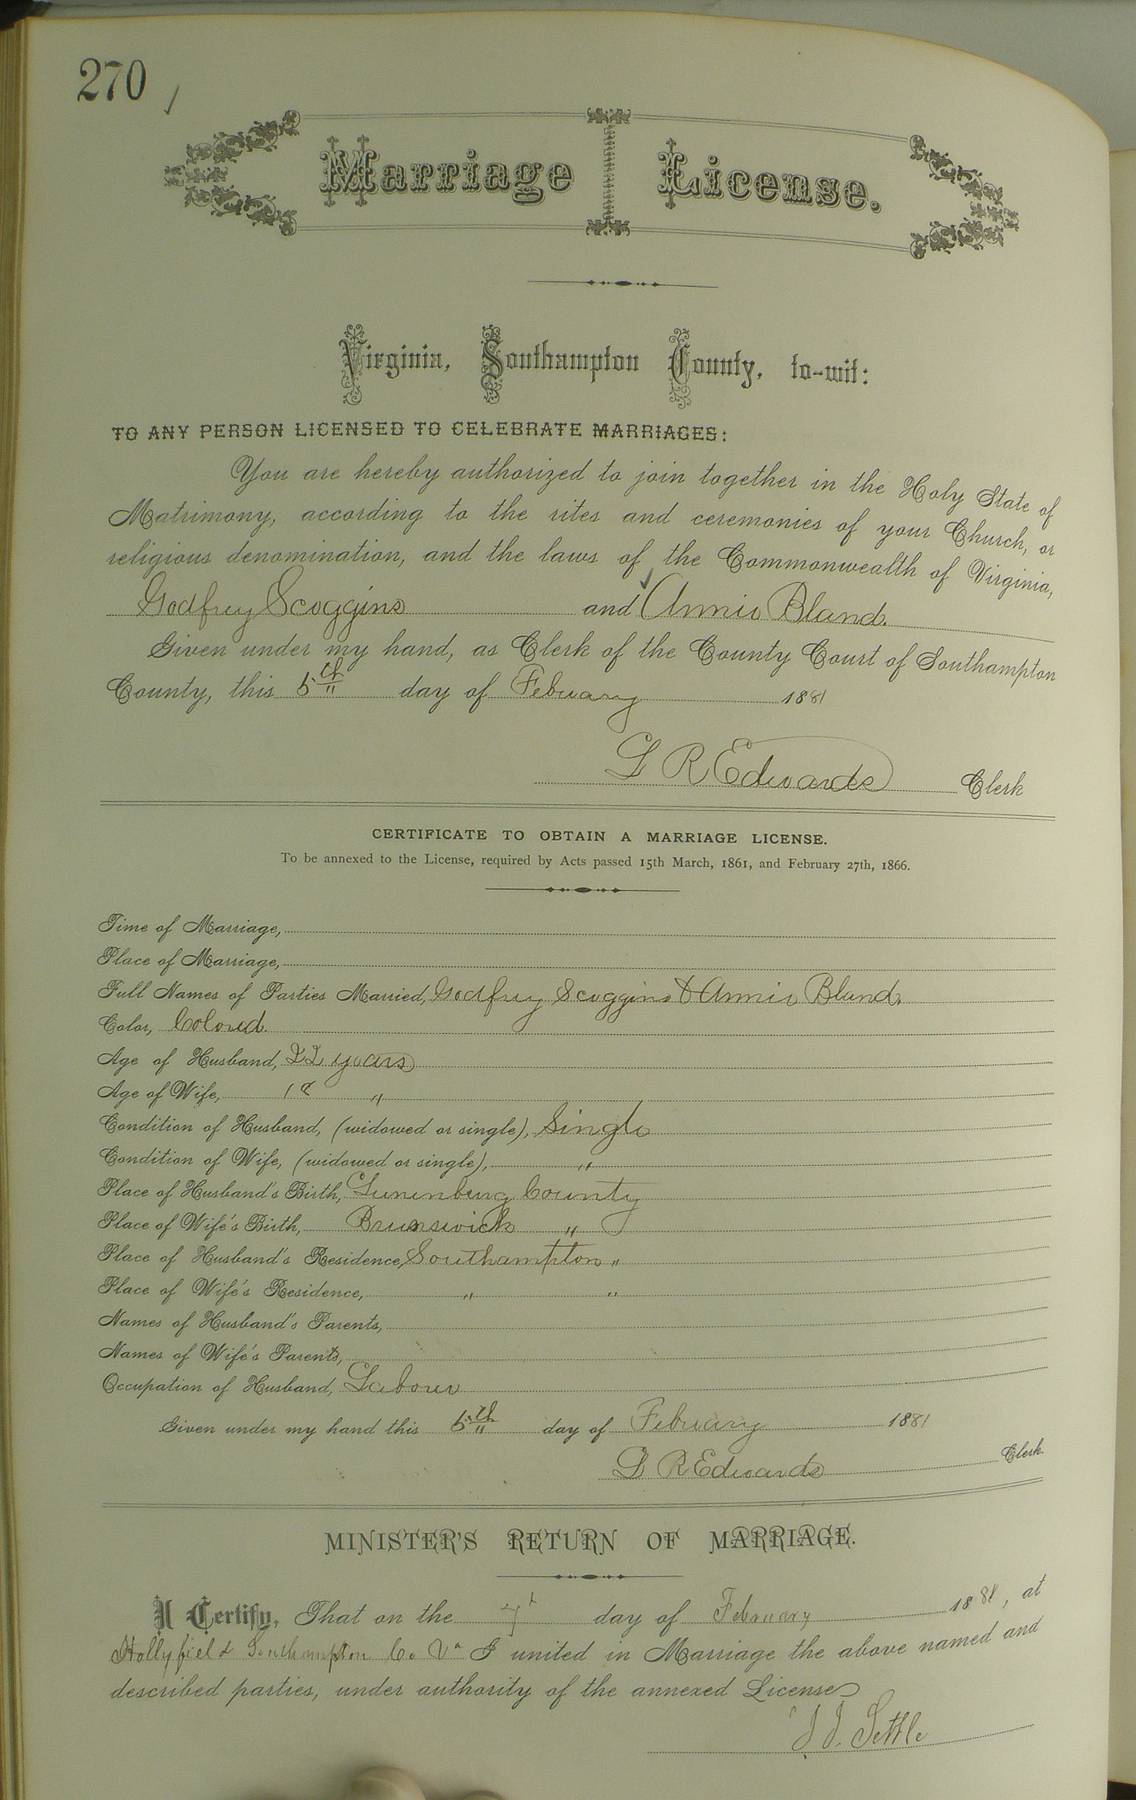 270
Marriage License.
Virginia, Southampton County, to-wit:
TO ANY PERSON LICENSED TO CELEBRATE MARRIAGES:
You are hereby authorized to join together in the Holy State of
Matrimony, according to the rites and ceremonies of your Church, or
religious denomination, and the laws of the Commonwealth of Virginia,
Godfrey Scoggins and Annie Bland.
Given under my hand, as Clerk of the County Court of Southampton
County, this 5th day of Febuary 1881
L R Edwards Clerk
CERTIFICATE TO OBTAIN A MARRIAGE LICENSE.
To be annexed to the License, required by Acts passed 15th March, 1861, and February 27th, 1866.
Time of Marriage,
Place of Marriage,
Full Names of Parties Married, Godfrey Scoggins & Annie Bland.
Color, Colored.
Age of Husband, 22 years
Age of Wife, "
Condition of Husband, (widowed or single), Single
Condition of Wife, (widowed or single), "
Place of Husband's Birth, Lunenburg County
Place of Wife's Birth, Brunswick "
Place of Husband's Residence, Southampton "
Place of Wife's Residence, " "
Names of Husband's Parents,
Names of Wife's Parents,
Occupation of Husband, Labour
Given under my hand this 5th day of Febuary 1881
L R Edwards Clerk.
MINISTER'S RETURN OF MARRIAGE.
I Certify, That on the 7th day of February 1881, at
Hollyfield Southampton Co. Va I united in Marriage the above named and
described parties, under authority of the annexed License
J. J. Settle